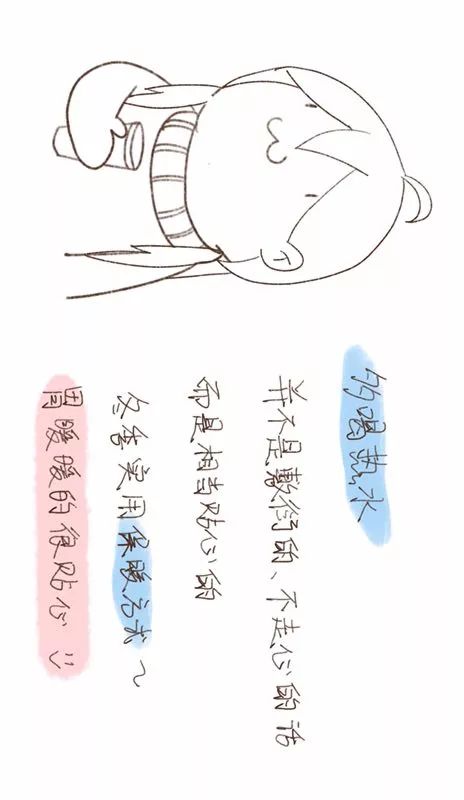 多喝热水
并不是敷衍的、不走心的话
而是相当贴心的
冬季实用保暖方式~
周暖暖的很贴心